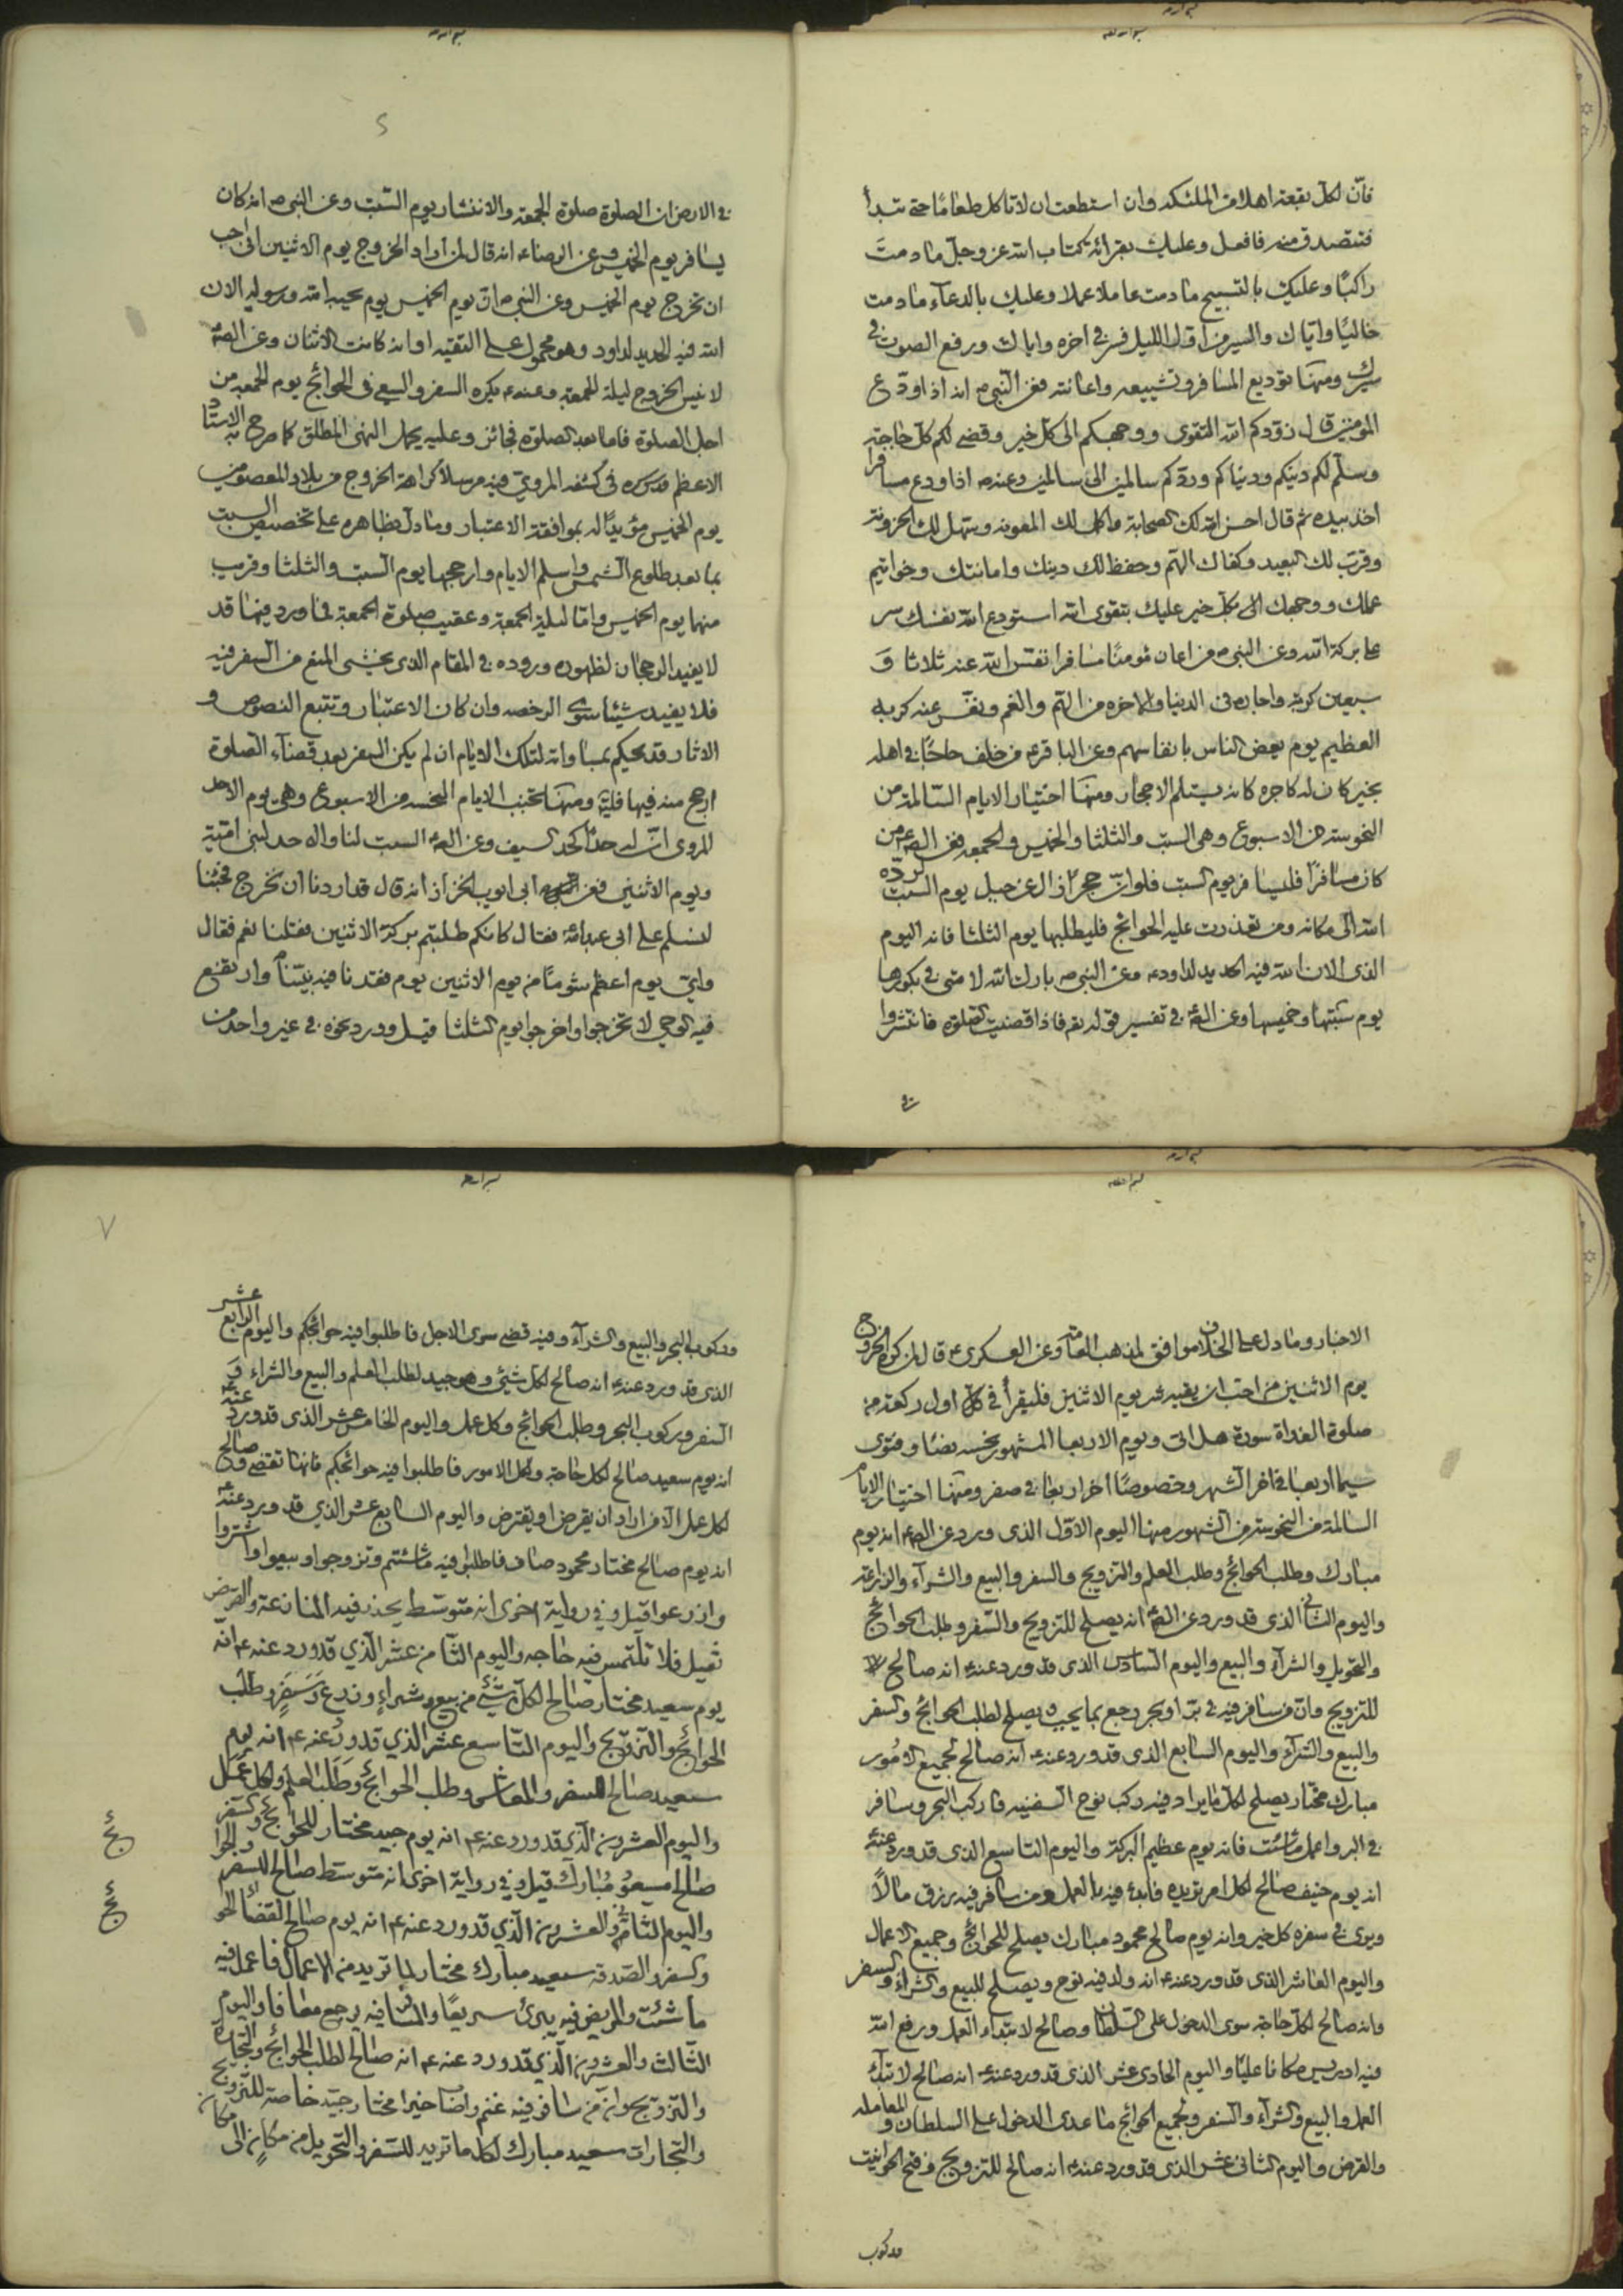 فان لكل بقعة اهلا من الملئكه وان استطعت ان لا تاكل طعاما حتى تبدأ
فتتصدق منه فافعل وعليك بقرائة كتاب الله عز وجل ما دمت
راكبًا وعليك بالتسبيح ما دمت عاملا عملا وعليك بالدعاء ما دمت
خاليًا واياك والسير من اول الليل وسر في اخره واياك ورفع الصوت في
سيرك ومنها توديع المسافر وتشييعه واعانته فعن النبي ص انه اذا ودع
المؤمنين قال زودكم الله التقوى ووجهكم الى كل خير وقضى لكم كل حاجة
وسلم لكم دينكم ودنياكم وردكم سالمين الى سالمين وعنه ص اذا ودع مسافرا
اخذ بيده ثم قال احسن الله لك الصحابة واكمل لك المعونه وسهل لك الحزونة
وقرب لك البعيد وكفاك الهم وحفظ لك دينك وامانتك وخواتيم
عملك ووجهك الى كل خير عليك بتقوى الله استودع الله نفسك سر
على بركة الله وعن النبي ص من اعان مؤمنًا مسافرا نفس الله عنه ثلاثا و
سبعين كربة واجاره في الدنيا والاخره من الهم والغم ونفس عنه كربه
العظيم يوم يعض الناس بانفاسهم وعن الباقر ع من خلف حاجًا في اهله
بخير كان له كاجره كانه يستلم الاحجار ومنها اختيار الايام السالمة من
النحوسة من الاسبوع وهي السبت والثلثا والخميس والجمعه فعن الصـ ع من
كان مسافرًا فليسافر يوم السبت فلو ان حجرًا زال عن جبل يوم السبت لرده
الله الى مكانه ومن تعذرت عليه الحوائج فليطلبها يوم الثلثا فانه اليوم
الذي الان الله فيه الحديد لداود ع وعن النبي ص بارك الله لامتى في بكورها
يوم سبتها وخميسها وعن الصـ ع في تفسير قوله تعـ فاذا قضيت الصلوة فانتشروا
في
في الارض ان الصلوة صلوة الجمعة والانتشار يوم السبت وعن النبي ص انه كان
يسافر يوم الخميس وعن الرضا ع انه قال لمن اراد الخروج يوم الاثنين احب
ان تخرج يوم الخميس وعن النبي ص ان يوم الخميس يوم يحبه الله ورسوله الان
الله فيه الحديد لداود وهو محمول على التقيه او انه كانت الاثنان وعن الصـ ع
لا نس الخروج ليلة الجمعة وعنه ع يكره السفر والسعي في الحوائج يوم الجمعه من
اجل الصلوة فاما بعد الصلوة فجائز وعليه يحمل النهى المطلق كما صرح به الاستاد
الاعظم قدس سره في كشفه المروي فيه مرسلًا كراهة الخروج من بلاد المعصومين
يوم الخميس مؤيدًا له بموافقة الاعتبار وما دل بظاهره على تخصيص السبت
بما بعد طلوع الشمس واسلم الايام وارجحها يوم السبت والثلثا وقريب
منهما يوم الخميس واما ليلة الجمعة وعقيب صلوة الجمعة فما ورد فيها قد
لا يفيد الرجحان لظهوره وروده في المقام الذي يخشى المنع من السفر فيه
فلا يفيد شيئا سوى الرخصه وان كان الاعتبار وتتبع النصوص و
الاثار قد يحكم بمساواته لتلك الايام ان لم يكن السفر بعد قضاء الصلوة
ارجح منه فيها فليتـ ومنها تجنب الايام النحسه من الاسبوع وهي يوم الاحد
المروى ان له حدًا كحد السيف وعن الصـ ع السبت لنا والاحد لبنى امية
ويوم الاثنين فعن ابى ايوب الخزاز انه قال قد اردنا ان نخرج فجئنا
لنسلم على ابي عبدالله ع فقال كانكم طلبتم بركة الاثنين فقلنا نعم فقال
واي يوم اعظم شومًا من يوم الاثنين يوم فقدنا فيه نبينا وارتفع
فيه الوحى لا تخرجوا واخرجوا يوم الثلثا قيل وورد نحوه في غير واحد من
الاخبار وما دل على الخلاف موافق لمذهب العامة وعن العسكرى ع قال لمن كره الخروج
يوم الاثنين من احب ان يقيه شر يوم الاثنين فليقرأ في اول ركعة من
صلوة الغداة سورة هل اتى ويوم الاربعا المشهور بنحسه نصًا وفتوى
سيما اربعا في اخر الشهر وخصوصًا اخر اربعا في صفر ومنها اختيار الايام
السالمة من النحوسة من الشهور منها اليوم الاول الذى ورد عن الصـ ع انه يوم
مبارك وطلب الحوائج وطلب العلم والتزويج والسفر والبيع والشراء والزراعة
واليوم الثاني الذى قد ورد عن الصـ ع انه يصلح للتزويج والسفر وطلب الحوائج
والتحويل والشراء والبيع واليوم السادس الذى قد ورد عنه ع انه صالح
للتزويج وان من سافر فيه في بر او بحر رجع بما يحبه ويصلح لطلب الحوائج والسفر
والبيع والشراء واليوم السابع الذى قد ورد عنه ع انه صالح لجميع الامور
مبارك مختار يصلح لكل ما يراد فيه ركب نوح السفينه فاركب البحر وسافر
في البر واعمل ما شئت فانه يوم عظيم البركة واليوم التاسع الذى قد ورد عنه ع
انه يوم خفيف صالح لكل امر تريده فابدء فيه بالعمل ومن سافر فيه رزق مالًا
ويرى في سفره كل خير وانه يوم صالح محمود مبارك يصلح للحوائج وجميع الاعمال
واليوم العاشر الذى قد ورد عنه ع انه ولد فيه نوح ويصلح للبيع والشراء والسفر
وانه صالح لكل حاجة سوى الدخول على السلطان وصالح لابتداء العمل ورفع الله
فيه ادريس مكانا عليًا واليوم الحادى عشر الذى قد ورد عنه ع انه صالح لابتداء
العمل والبيع والشراء والسفر ولجميع الحوائج ما عدى الدخول على السلطان والمعامله
والقرض واليوم الثانى عشر الذى قد ورد عنه ع انه صالح للتزويج وفتح الحوانيت
وركوب
وركوب البحر والبيع والشراء وفيه قضى موسى الاجل فاطلبوا فيه حوائجكم واليوم الرابع عشر
الذى قد ورد عنه ع انه صالح لكل شيء وهو جيد لطلب العلم والبيع والشراء و
السفر وركوب البحر وطلب الحوائج وكل عمل واليوم الخامس عشر الذى قد ورد عنه ع
انه يوم سعيد صالح لكل حاجة وكل الامور فاطلبوا فيه حوائجكم فانها تقضى وصالح
لكل عمل الا من اراد ان يقرض او يقترض واليوم السابع عشر الذي قد ورد عنه ع
انه يوم صالح مختار محمود صاف فاطلبوا فيه ما شئتم وتزوجوا وبيعوا واشتروا
وازرعوا قيل وفي رواية اخرى انه متوسط يحذر فيه المنازعة والقرض
ثقيل فلا تلتمس فيه حاجه واليوم الثامن عشر الذي قد ورد عنه ع انه
يوم سعيد مختار صالح لكل شيء من بيع وشراء وزرع وسفر وطلب
الحوائج والتزويج واليوم التاسع عشر الذي قد ورد عنه ع انه يوم
سعيد صالح للسفر والمعاش وطلب الحوائج وطلب العلم ولكل عمل
واليوم العشرون الذي قد ورد عنه ع انه يوم جيد مختار للحوائج والسفر
صالح مسعود مبارك قيل وفي رواية اخرى انه متوسط صالح للسفر والحوائج
واليوم الثاني والعشرون الذي قد ورد عنه ع انه يوم صالح لقضاء الحوائج
والسفر والصدقة سعيد مبارك مختار لما تريد من الاعمال فاعمل فيه
ما شئت والمريض فيه يبرئ سريعًا والمسافر فيه يرجع معافا واليوم
الثالث والعشرون الذي قد ورد عنه ع انه صالح لطلب الحوائج والتجارة
والتزويج وان من سافر فيه غنم واصاب خيرا مختار جيد خاصة للتزويج
والتجارات سعيد مبارك لكل ما تريد للسفر والتحويل من مكان الى مكان
ئج
ئج